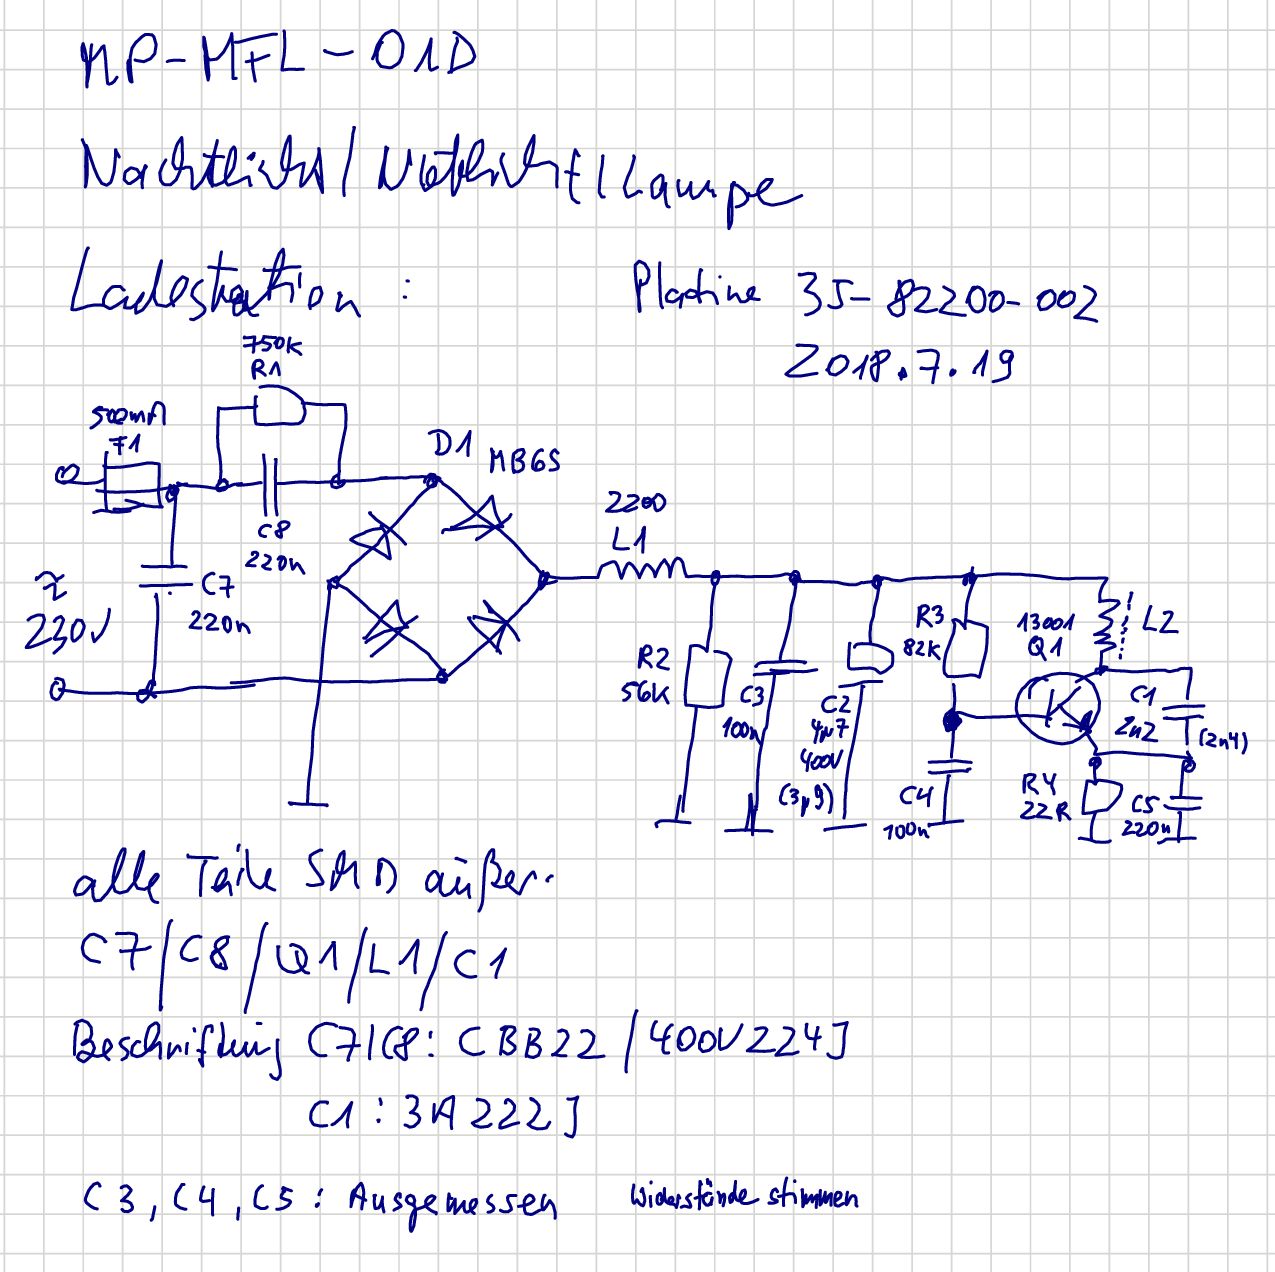 NP-MFL-01D
Nachtlicht / Notlicht / Lampe
Ladestation :
Platine 35-82200-002
2018.7.19
750K
R1
500mA
F1
D1 MB6S
C8
220n
C7
220n
~
230V
2200
L1
R2
56K
C3
100n
C2
4µ7
400V
(3µ9)
R3
82K
C4
100n
13001
Q1
L2
C1
2n2
(2n4)
R4
22R
C5
220n
alle Teile SMD außer.
C7/C8/Q1/L1/C1
Beschriftung C7/C8: CBB22 / 400V224J
C1 : 3A222J
C3, C4, C5 : Ausgemessen
Widerstände stimmen